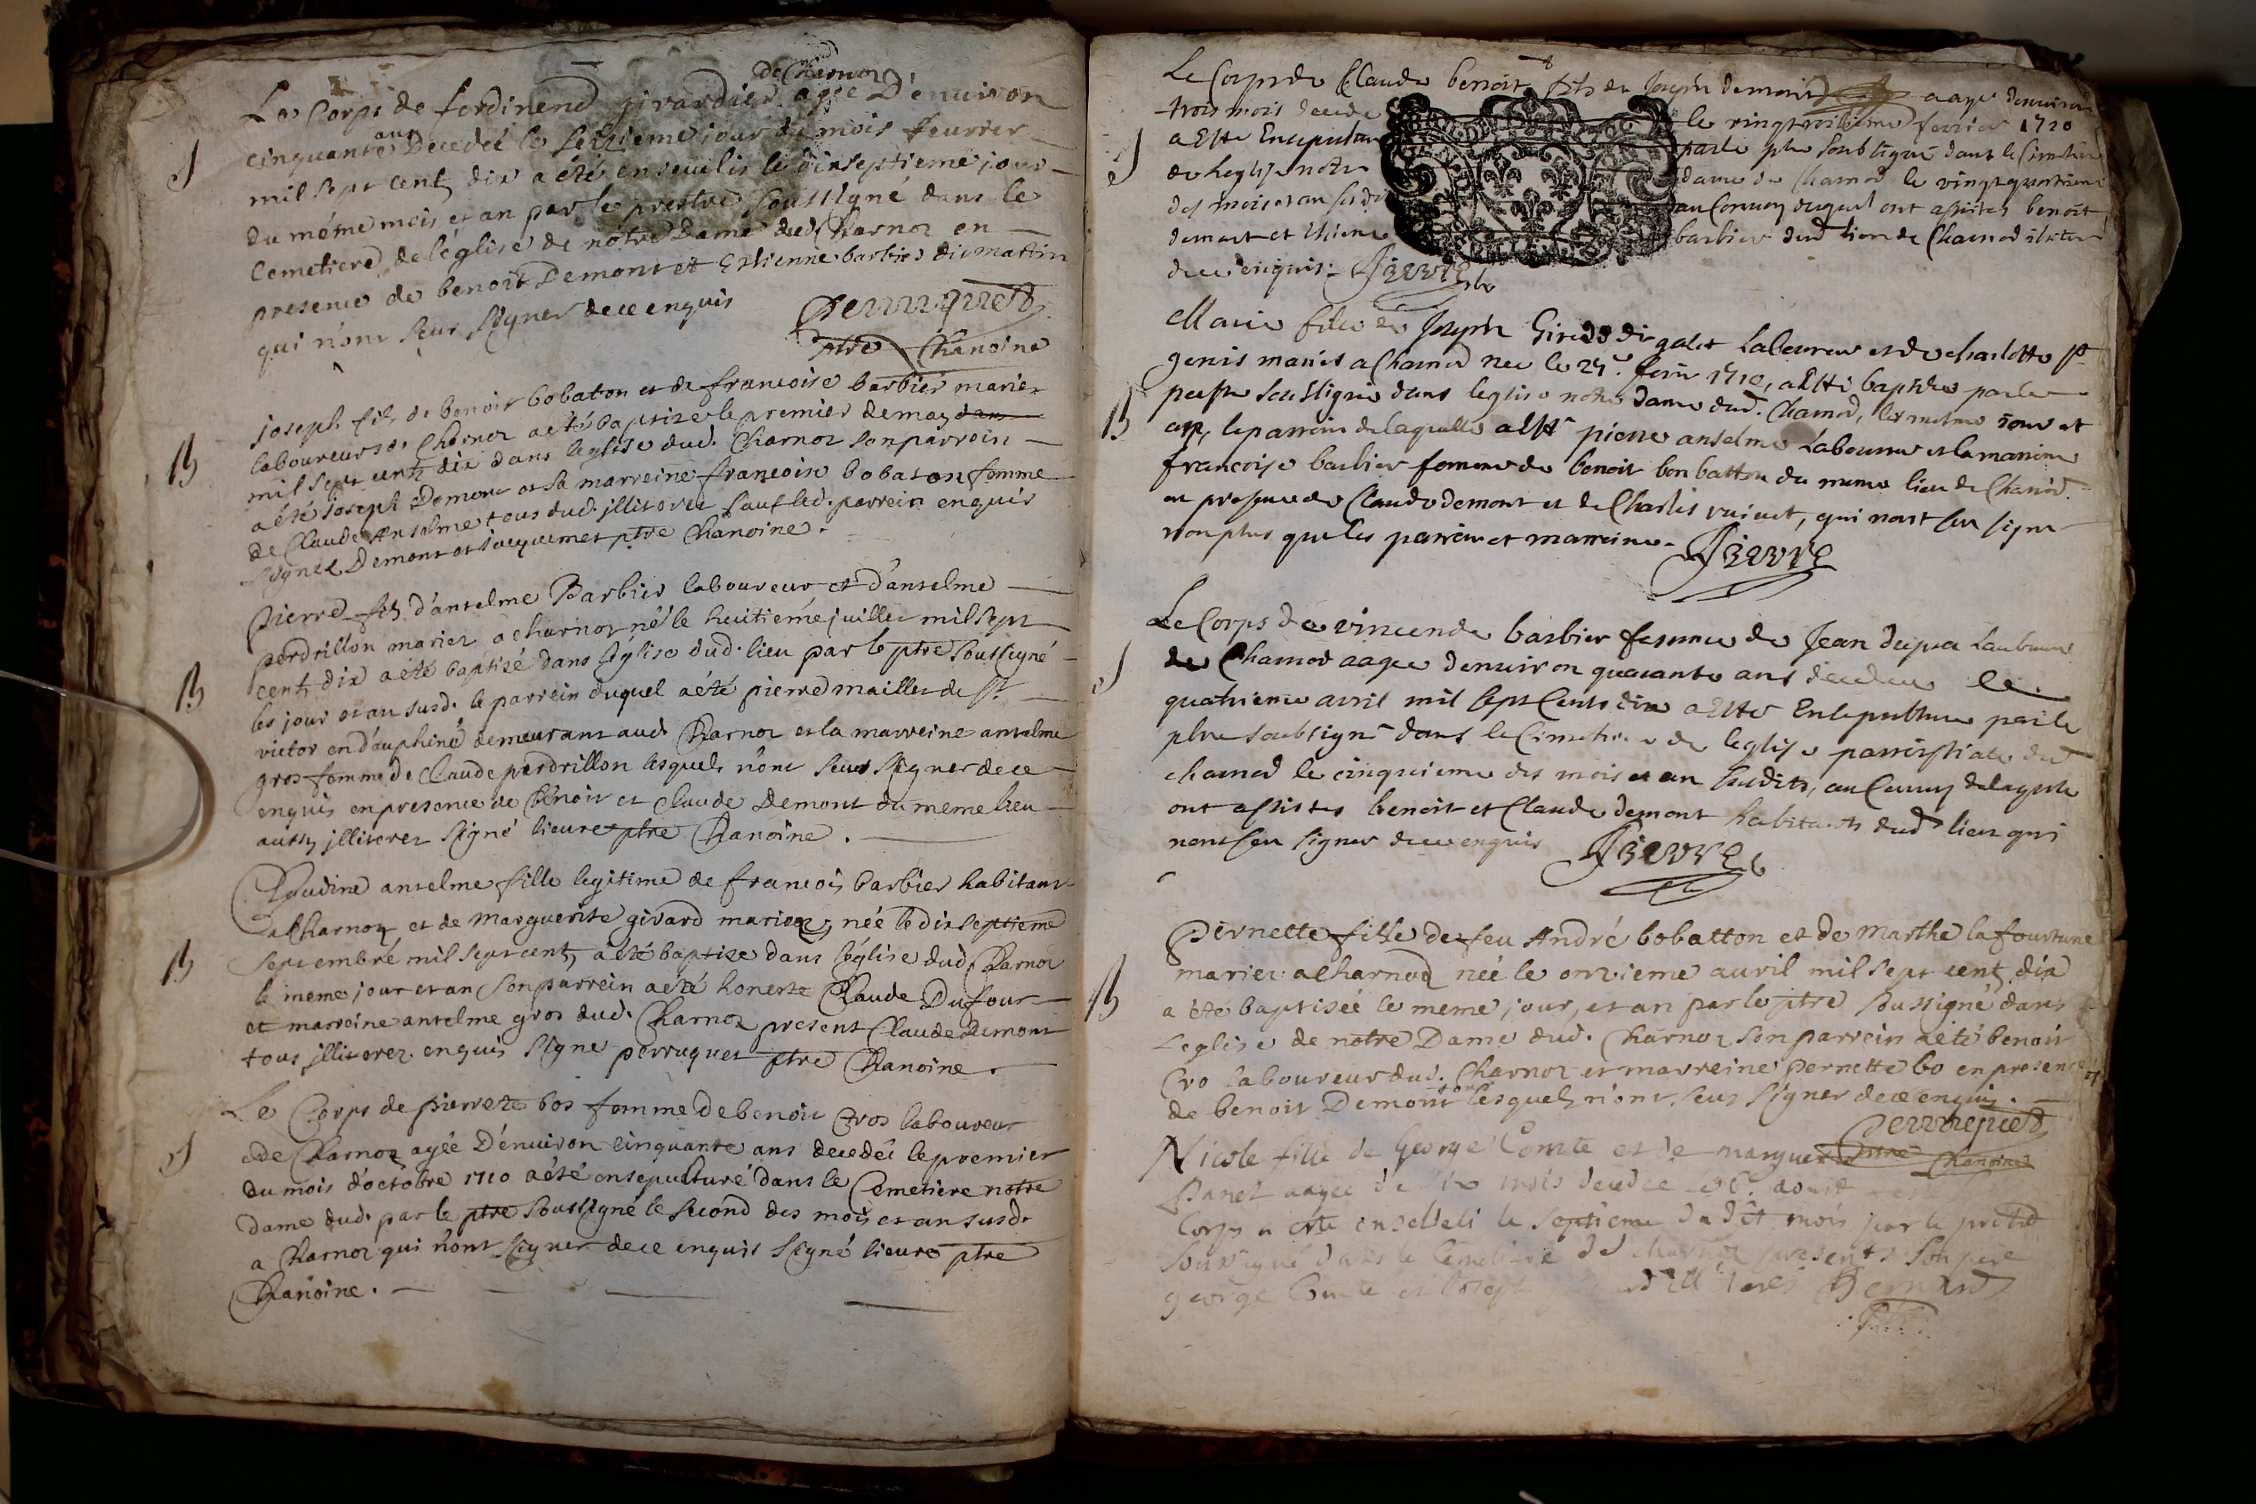 de Charnoz
Le Corps de ferdinend girardier agée D'enuiron
cinquante ans Decedéé le seizieme jour du mois feurier
mil sept cent, dix a été enseuelis le dixseptieme jour
du méme mois et an par le prestre soussigné dans le
Cemetiere de l'église de nótre Dame dud Charnoz en
presence de benoit Demont et Estienne barbier dit martin
qui n'ont seus signer de ce enquis
Perruquet
ptre Chanoine
S
joseph fils de benoit bobaton et de francoise barbier mariez
laboureurs de Charnoz a eté baptizé le premier de may
mil sept cent, dix dans l'église dud. Charnoz son parrein
a été joseph Demont et sa marreine francoise bobaton femme
de Claude Anselme tous dud. jlliterez sauf led. parrein enquis
signéz Demont et jacquemet ptre Chanoine.
B
Pierre fils d'antelme Barbier laboureur et d'antelme
perdrillon mariez a charnoz né le huitiéme juillet mil sept
cent, dix a été baptizé dans l'église dud. lieu par le ptre soussigné
les jour et an susd. le parrein duquel a été pierre maillet de St
victor en d'auphiné demeurant aud. Charnoz et la marreine antelme
gros femme de Claude perdrillon lesquels n'ont seus signer de ce
enquis en presence de Bénoit et Claude Demont du meme lieu
aussy jlliterez signé lieure ptre Chanoine.
B
Claudine antelme fille legitime de francois barbier habitant
a Charnoz et de marguerite girard mariez, née le dix septieme
septembre mil sept cent, a eté baptize dans l'église dud. Charnoz
le meme jour et an son parrein a eté honeste Claude Dufour
et marreine antelme gros dud. Charnoz present Claude Demont
tous jlliterez enquis signe perruquet ptre Chanoine.
B
Le Corps de pierrete bos femme de benoit Cros laboureur
de Charnoz agée D'enuiron cinquante ans decedéé le premier
du mois d'octobre 1710 a été ensepulturé dans le Cemetiere notre
dame dud. par le ptre soussigné le second des mois et an susd.
a Charnoz qui n'ont signer de ce enquis signé lieure ptre
Chanoine.
S
Le Corps de Claude benoit fils de Joseph demont aage denuiron
trois mois decede le vingt troisieme feurier 1710
a Este Ensepulture par le ptre soubsigné dans le Cimetiere
de leglise notre dame de Charnod le vingt quatrieme
des mois et an susdit au Conuoy duquel ont assistez benoit
demont et Etienne barbier dud lieu de Charnod
de ce enquis. Lieure
S
Marie fille de Joseph Girard dit galet Laboureur et de charlotte St
genis mariés a Charnod nee le 27e feur 1710, a Esté baptisee par le
prestre soussigné dans leglise notre dame dud. Charnod, les mesme jour et
an, le parrein de laquelle a esté pierre anselme Laboureur et la marraine
francoise barbier femme de benoit bonbatton du mesme lieu de Charnod
en presence de Claude demont et de Charles vuiuet, qui nont seu signer
non plus que les parrein et marreine. Lieure
B
Le Corps de vincende barbier femme de Jean dupra Laboureur
de Charnod aagee denuiron quarante ans decedee le
quatrieme auril mil sept Cents dix a Este Ensepulture par le
ptre soubsigné dans le Cimetiere de leglise parroissiale dud
charnod le cinquieme des mois et an susdits, au Conuoy de laquelle
ont assistes benoit et Claude demont habitants dud lieu qui
nont seu signer de ce enquis Lieure
S
Pernette fille de feu André bobatton et de Marthe la fourtune
mariez a charnoz née le onzieme auril mil sept cent, dix
a été baptisée le meme jour, et an par le ptre soussigné dans
L'eglise de notre Dame dud. Charnoz son parrein a été benoit
Cro laboureur dud. Charnoz et marreine Pernette bo en presence
de benoit Demont lesquels n'ont seus signer de ce enquis.
Perruquet
ptre Chanoine
B
Nicole fille de George Comte et de marguerite
Banet aagee de mois decedee aoust
Corps a este enseueli le septieme dudit mois par le
soussigné dans le Cemetiere de Charnoz presents son pere
george Comte et Joseph Bernard